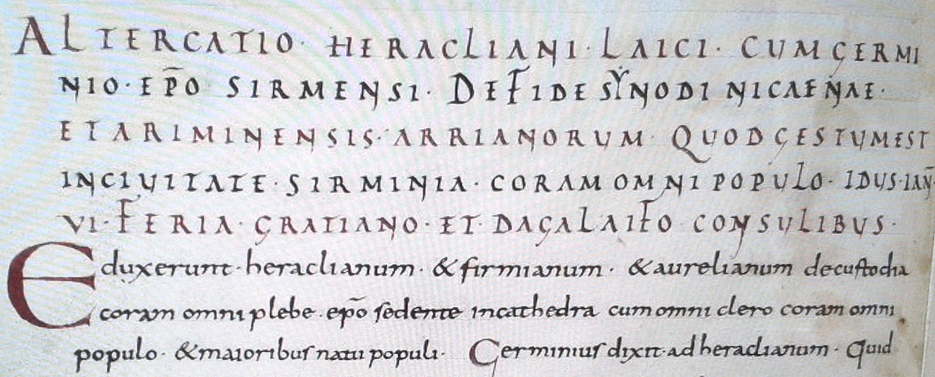 ALTERCATIO· HERACLIANI· LAICI· CUM GERMI
NIO· EP̄O SIRMENSI· DE FIDE SẎNODI NICAENAE·
ET ARIMINENSIS· ARRIANORUM· QUOD GESTUM EST
IN CIVITATE· SIRMINIA· CORAM OMNI POPULO· IDUS· IAN̄·
VI· FERIA· GRATIANO· ET DAGALAIFO CONSULIBUS·
Eduxerunt· heraclianum· & firmianum· & aurelianum de custodia
coram omni plebe· ep̄o sedente in cathedra cum omni clero coram omni
populo· & maioribus natu populi· Germinius dixit· ad heraclianum· Quid